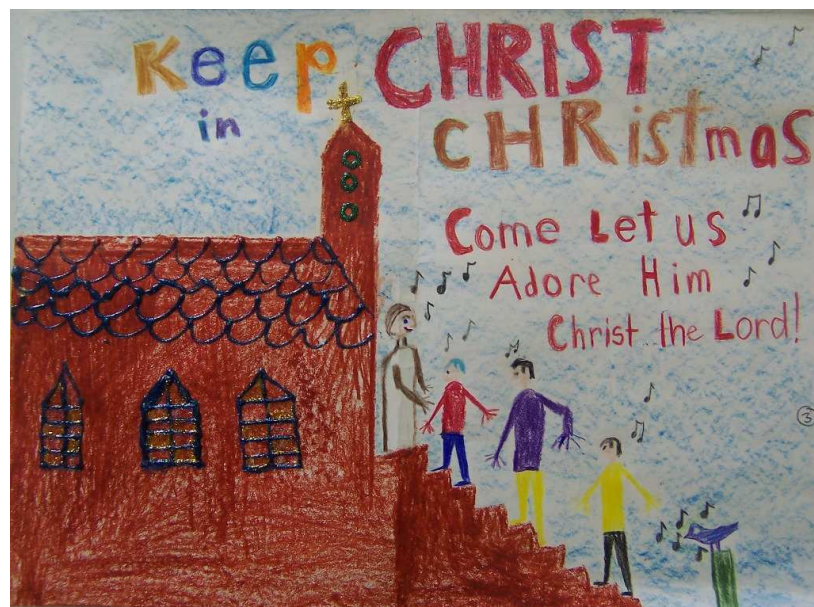 Keep CHRIST
in CHRistmas
Come Let us
Adore Him
Christ the Lord!
3